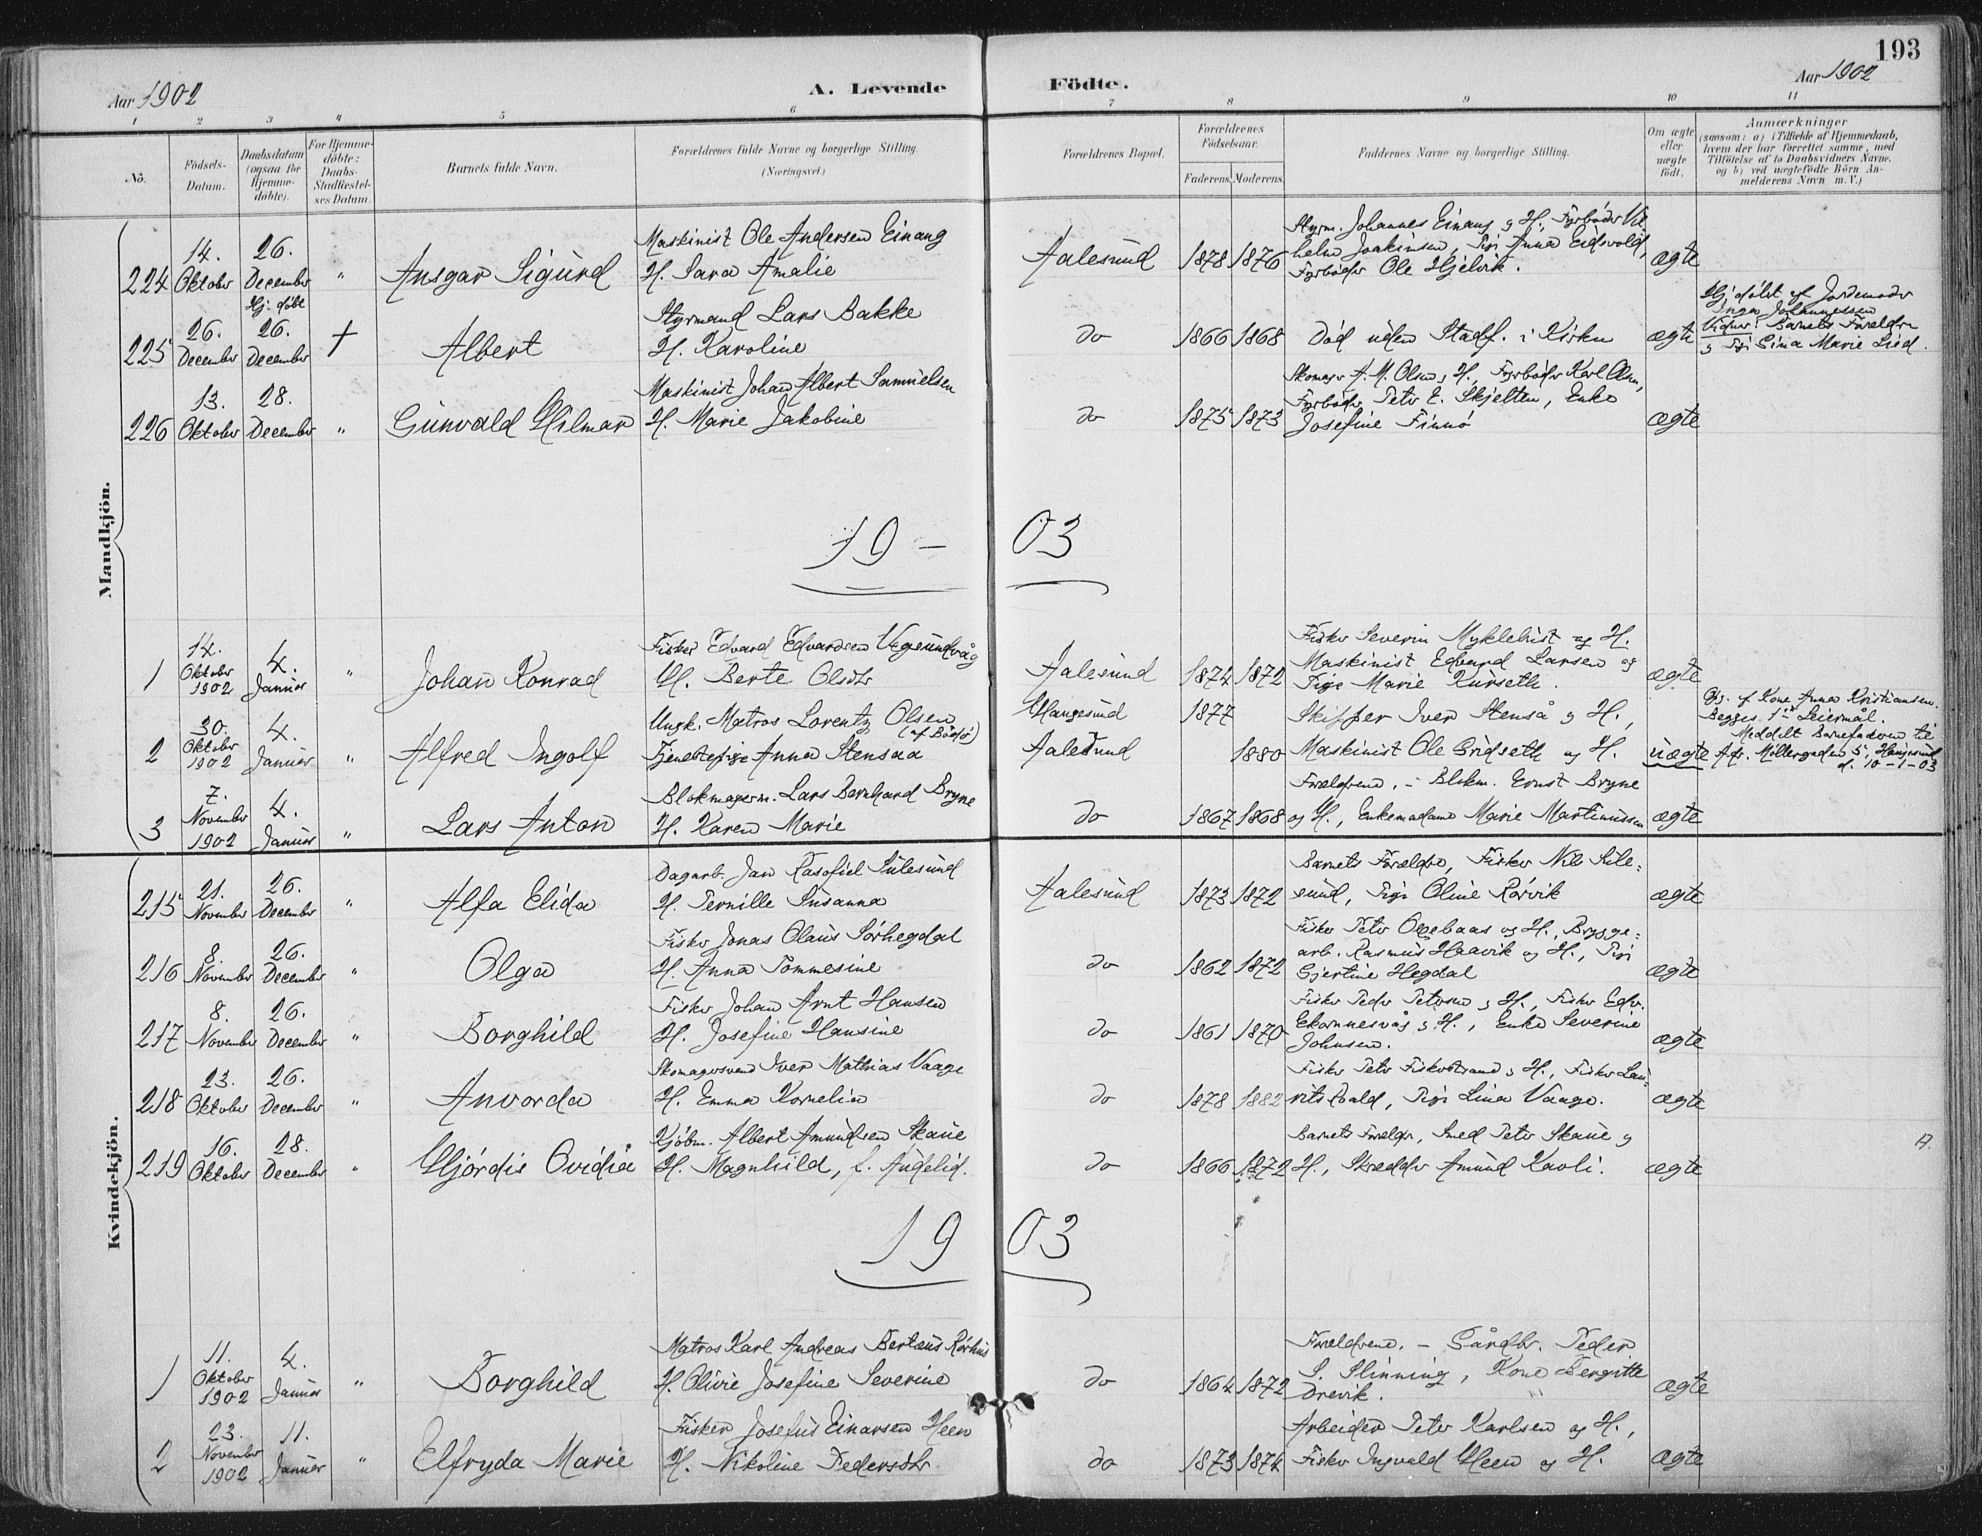 193
Aar 1902
A. Levende Födte.
Aar 1902
1 2 3 4 5 6 7 8 9 10 11
Nô.
Födsels-Datum.
Daabsdatum (ogsaa for Hjemme-döbte).
For Hjemme-döbte: Daabs-Stadfæstel-ses Datum.
Barnets fulde Navn.
Forældrenes fulde Navne og borgerlige Stilling.
(Næringsvei.)
Forældrenes Bopæl.
Forældrenes Födselsaar.
Faderens. Moderens.
Faddernes Navne og borgerlige Stilling.
Om ægte eller uægte födt.
Anmærkninger
(saasom: a) i Tilfælde af Hjemmedaab, hvem der har forrettet samme, med Tilföielse af to Daabsvidners Navne, og b) ved uægtefödte Börn An-melderens Navn m. V.)
Mandkjön.
224 14. Oktober 26. December " Ansgar Sigurd
Maskinist Ole Andersen Einang
H. Sara Amalie
Aalesund 1878 1876
Styrm. Johannes Einang og H., Fyrböder Vil-
helm Joakimsen, Pige Anna Eidsvold,
Fyrböder Ole Hjelvik.
ægte
225 26. December Hj. döbt 26. December + Albert
Styrmand Lars Bakke
H. Karoline
do 1866 1868
Död uden Stadf. i Kirken
ægte
Hj. döbt af Jordemoder
Inga Johannessen
Vidner: Barnets Forældre
og Pige Gina Marie Lied.
226 13. Oktober 28. December " Gunvald Hilmar
Maskinist Johan Albert Samuelsen
H. Marie Jakobine
do 1875 1873
Skomager A. M. Olsen og H., Fyrböder Karl Olsen,
Fyrböder Peter E. Skjelten, Enke
Josefine Finnö
ægte
19 - 03
1 14. Oktober 1902 4. Januar " Johan Konrad
Fisker Edvard Edvardsen Vegsundvåg
H. Berte Olsdtr
Aalesund 1874 1872
Fisker Severin Myklebust og H.
Maskinist Edvard Larsen og
Pige Marie Kurseth.
ægte
2 30. Oktober 1902 4. Januar " Alfred Ingolf
Ungk. Matros Lorentz Olsen
(af Bodö)
Tjenestepige Anna Stensaa
Haugesund 1877
Aalesund 1880
Skipper Iver Stenså og H.,
Maskinist Ole Gridseth og H.
uægte
Opg. af Kone Anna Kristiansen.
Begges 1ste Leiermål.
Meddelt Barnefaderen til
Adr. Möllergaden 5, Haugesund
d. 10-1-03
3 7. November 1902 4. Januar " Lars Anton
Blokmagerm. Lars Bernhard Bryne
H. Karen Marie
do 1867 1868
Forældrene. - Blokm. Ernst Bryne
og H., Enkemadame Marie Martinussen
ægte
Kvindekjön.
215 21. November 26. December " Alfa Elida
Dagarb. Jan Rasofiel Sulesund
H. Pernille Susanna
Aalesund 1873 1872
Barnets Forældre, Fisker Nils Sule-
sund, Pige Oline Rörvik
ægte
216 8. November 26. December " Olga
Fisker Jonas Olaus Sörhegdal
H. Anna Tommesine
do 1862 1872
Fisker Peter Ogebaas og H., Brygge-
arb. Rasmus Haavik og H., Pige
Gjertine Hegdal
ægte
217 8. November 26. December " Borghild
Fisker Johan Arnt Hansen
H. Josefine Hansine
do 1861 1870
Fisker Peder Petersen og H., Fisker Edv.
Ekornnesvåg og H., Enke Severine
Johnsen.
ægte
218 23. Oktober 26. December " Anvorda
Skomagersvend Iver Mathias Vaage
H. Emma Kornelia
do 1878 1882
Fisker Peter Fiskerstrand og H., Fisker Lau-
rits Roald, Pige Lina Vaage.
ægte
219 16. Oktober 28. December " Hjördis Ovidia
Kjöbm. Albert Amundsen Skaue
H. Magnhild, f. Audelid.
do 1866 1872
Barnets Forældre, Smed Peter Skaue og
H., Skrædder Amund Kavli.
ægte
19 03
1 11. Oktober 1902 4. Januar " Borghild
Matros Karl Andreas Berteus Rörhus
H. Olivie Josefine Severine
do 1864 1872
Forældrene. - Gårdbr. Peder
S. Slinning, Kone Bergitte
Drevik.
ægte
2 23. November 1902 11. Januar " Elfryda Marie
Fisker Josefus Einarsen Heen
H. Nikoline Pedersdtr
do 1873 1874
Arbeider Peter Karlsen og H.,
Fisker Ingvald Heen og H.
ægte